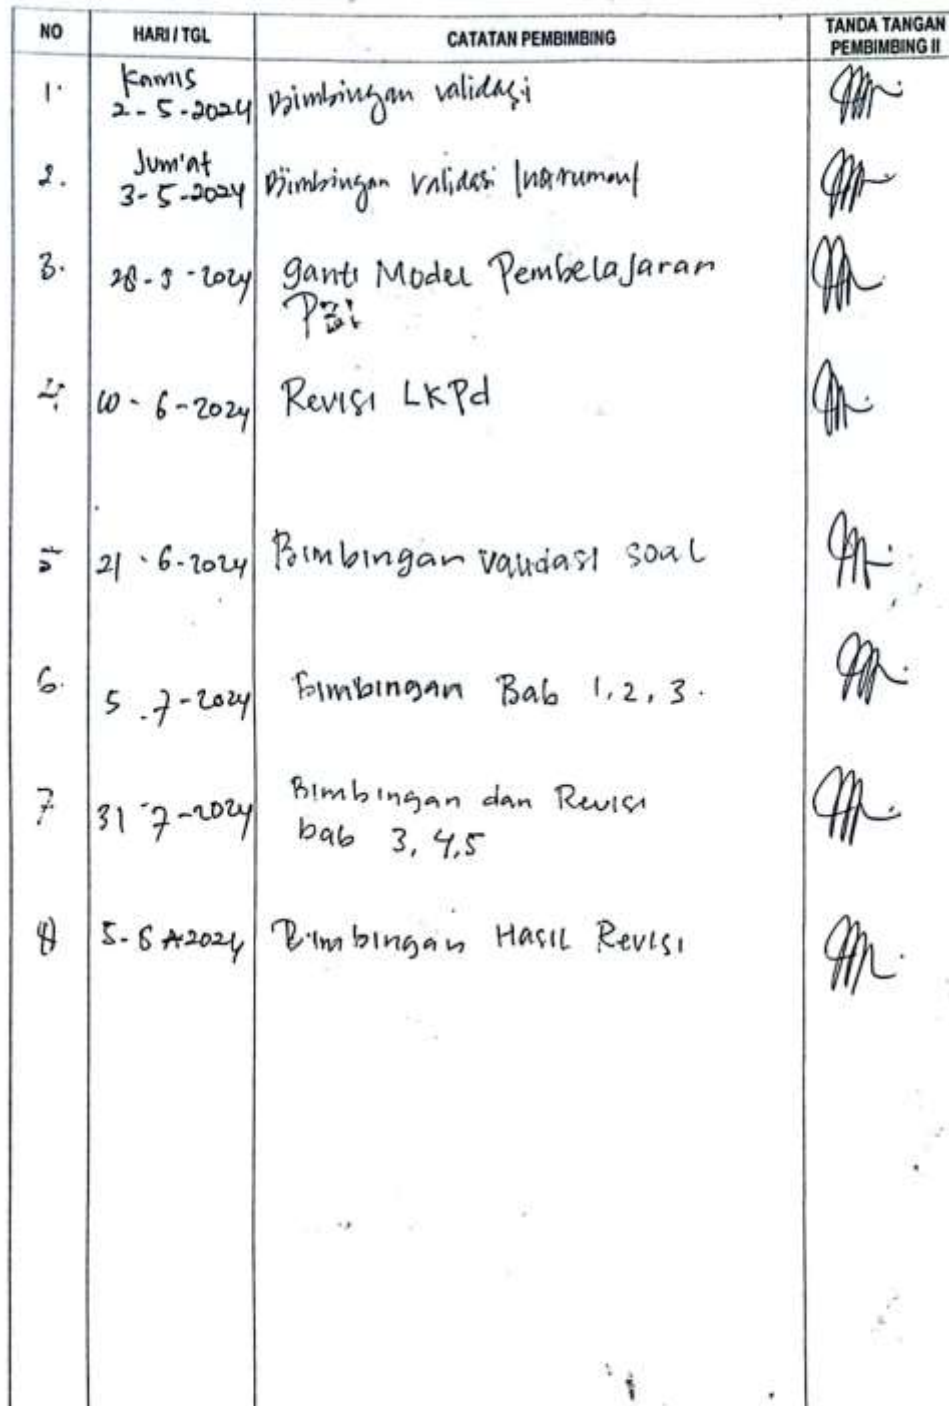 NO HARI / TGL CATATAN PEMBIMBING TANDA TANGAN PEMBIMBING II
1. Kamis
2-5-2024 Bimbingan validasi
2. Jum'at
3-5-2024 Bimbingan validasi Instrument
3. 28-5-2024 ganti Model Pembelajaran
4. 10-6-2024 Revisi LKPd
5 21-6-2024 Bimbingan validasi soal
6. 5-7-2024 Bimbingan Bab 1, 2, 3.
7 31-7-2024 Bimbingan dan Revisi
bab 3, 4, 5
8 5-8-2024 Bimbingan Hasil Revisi